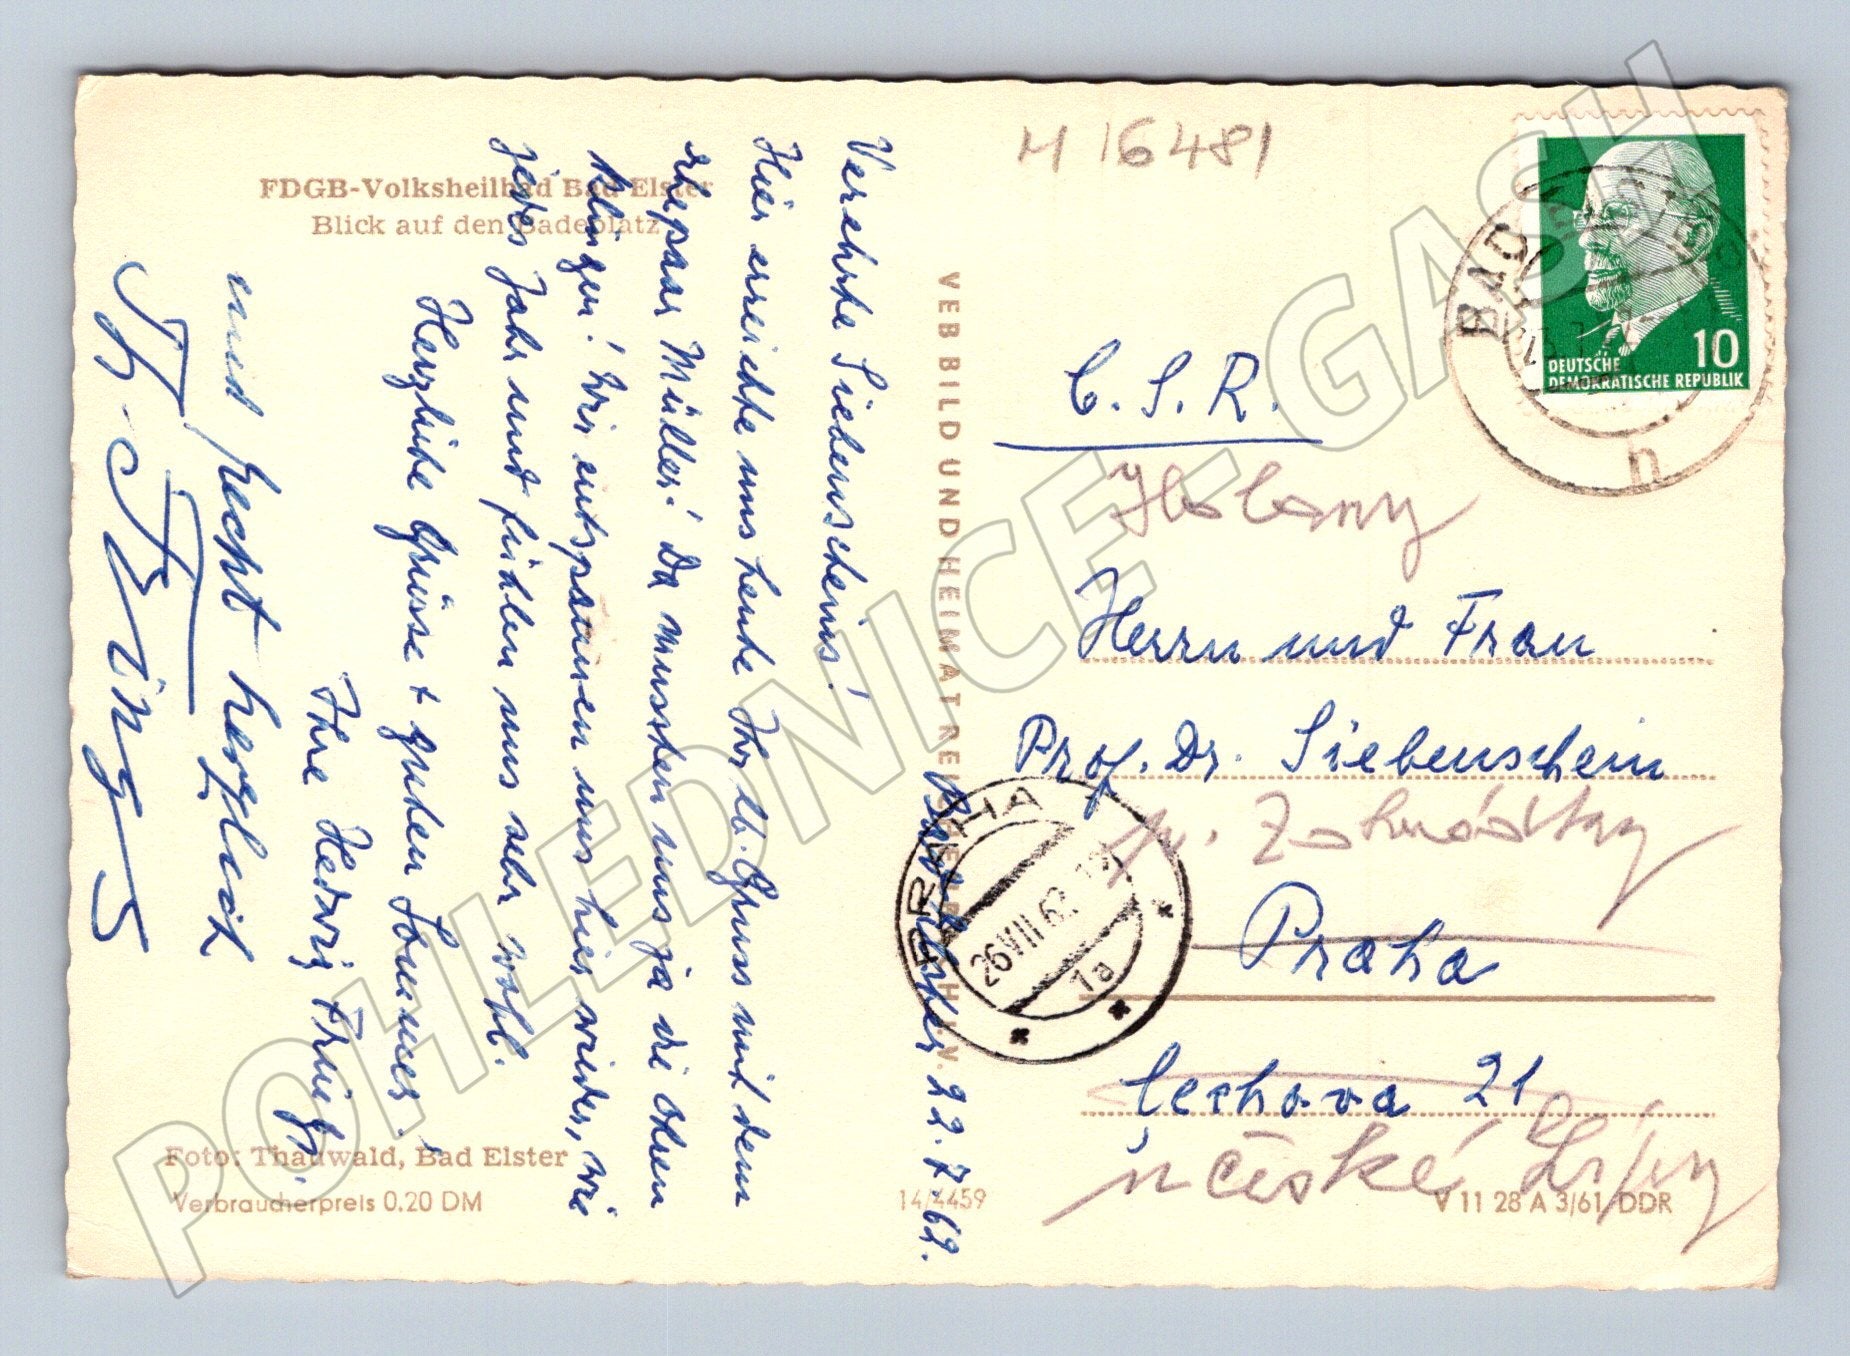 FDGB-Volksheilbad Bad Elster
Blick auf den Badeplatz
M 16481
Bad Elster 22.7.62.
Verehrte Siebenscheins!
Hier erreichte uns heute Ihr lb. Gruss mit dem
Ehepaar Müller! Da mussten uns ja die Ohren
klingen! Wir entspannen uns hier wieder, wie
jedes Jahr und fühlen uns sehr wohl.
Herzliche Grüsse + guten Sommer!
Ihre Hedwig
und herzlich
Foto: Thauwald, Bad Elster
Verbraucherpreis 0.20 DM
VEB BILD UND HEIMAT REICHENBACH I. V.
14/4459
DEUTSCHE
DEMOKRATISCHE REPUBLIK
10
BAD
n
Č.S.R.
Herrn und Frau
Prof. Dr. Siebenschein
PRAHA
26 VII 62
1a
Praha
Čechova 21
u České Lípy
V 11 28 A 3/61 DDR
POHLEDNICE - GASH